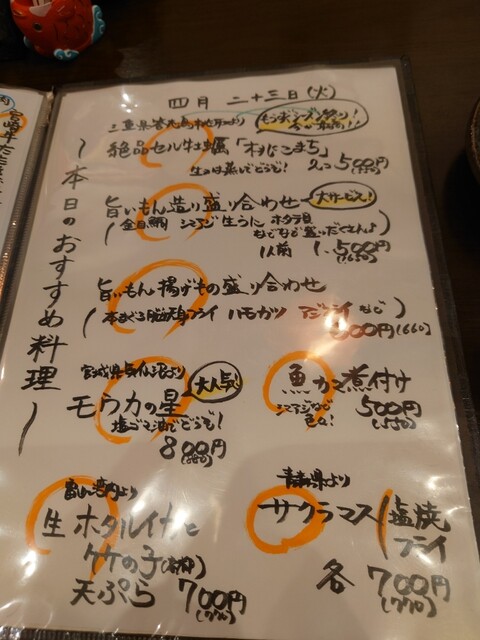 四月 二十三日(火)
〜本日のおすすめ料理〜
絶品セル牡蠣「桃こまち」
生or蒸しでどうぞ! 2コ500円
(550)
旨いもん造り盛り合わせ
大サービス!
金目鯛 シマアジ 生うに ホタテ貝
などなど盛りだくさんよ!
1人前 1,500円
(1650)
旨いもん揚げもの盛り合わせ
本まぐろ脳天フライ ハモカツ アジフライ など
600円(660)
宮城県気仙沼より
大人気!
モウカの星
塩ゴマ油でどうぞ!
800円
(880)
魚カマ煮付け
シマアジなど
色々!
500円
(550)
富山湾より
生ホタルイカと
竹の子
天ぷら 700円
(770)
青森県より
サクラマス
塩焼
フライ
各 700円
(770)